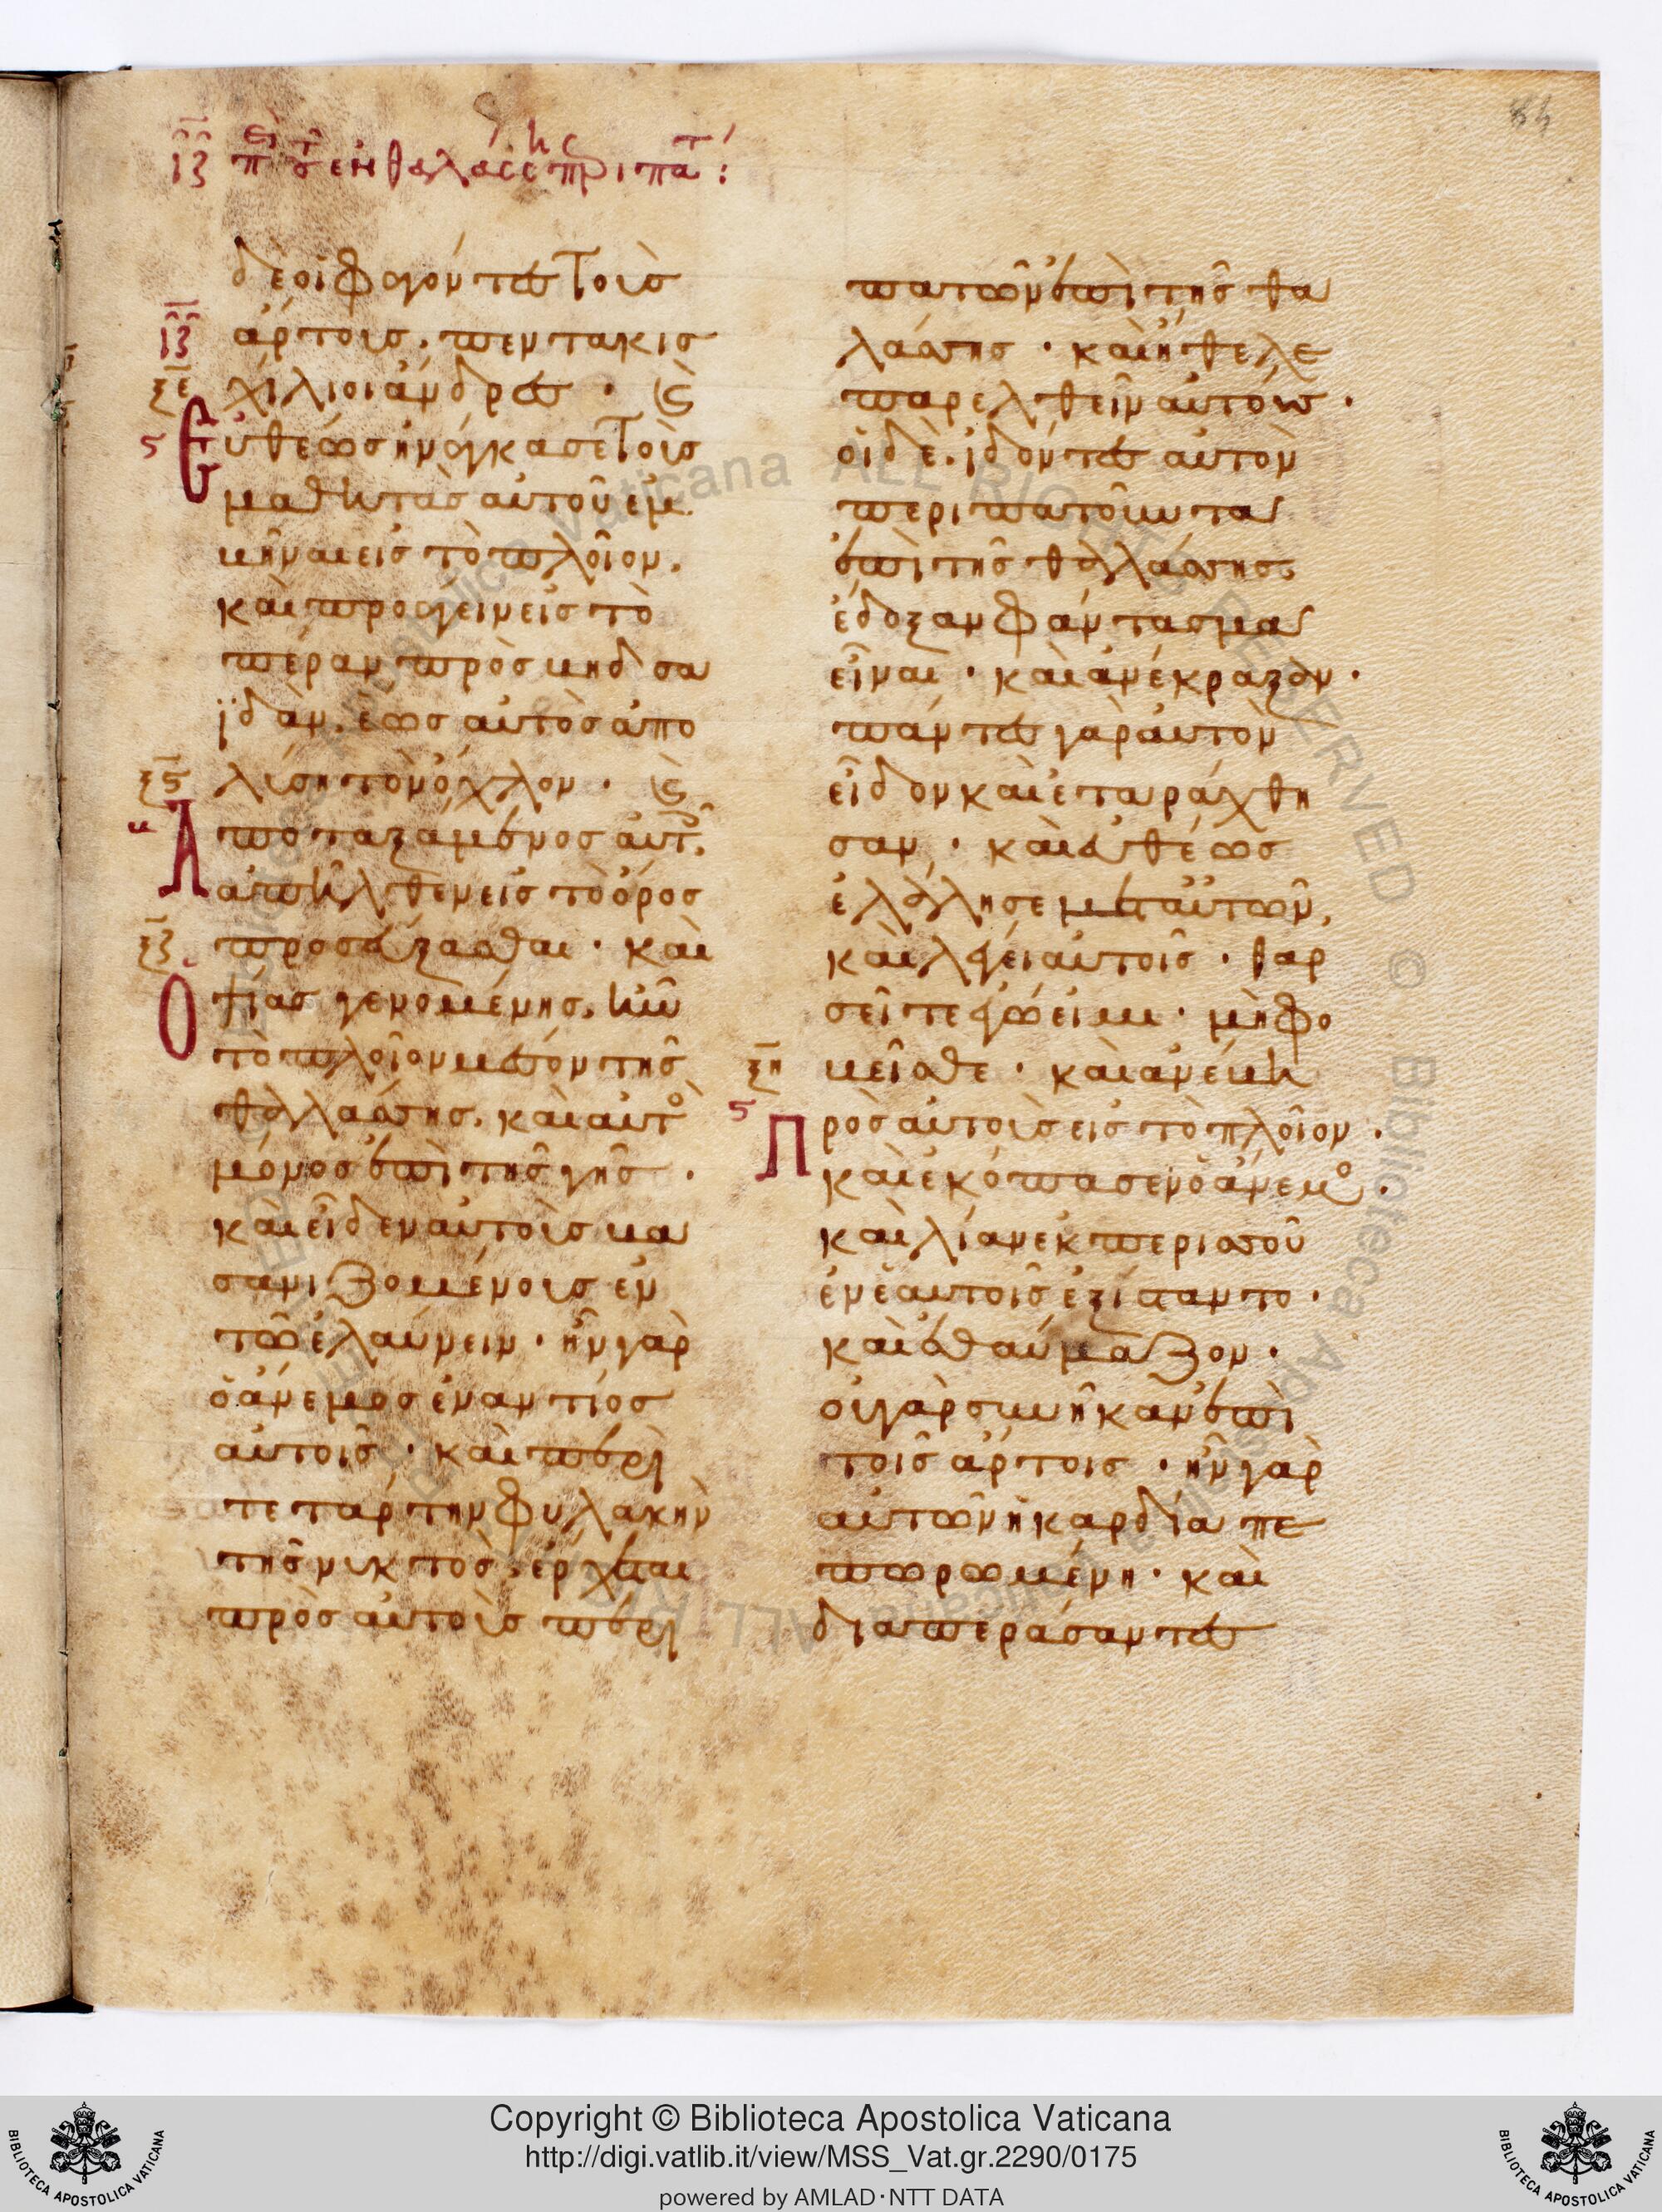 84
ιζ περὶ τοῦ ἐν θαλάσσης περιπάτ:
δὲ οἱ φαγόντες τοὺς
ἄρτους, πεντακισ
ιζ
ξε χίλιοι ἄνδρες · Καὶ
ς Εὐθέως ἠνάγκασε τοὺς
μαθητὰς αὐτοῦ ἐμ
βῆναι εἰς τὸ πλοῖον,
καὶ προάγειν εἰς τὸ
πέραν πρὸς βηδσα
ϊδὰν, ἕως αὐτὸς ἀπο
ξς λύση τὸν ὄχλον · Καὶ
Ἀποταξάμενος αὐτοῖς,
ἀπῆλθεν εἰς τὸ ὄρος
ξζ προσεύξασθαι · καὶ
Ὀψίας γενομένης, ἦν
τὸ πλοῖον μέσον τῆς
θαλάσσης, καὶ αὐτὸς
μόνος ἐπὶ τῆς γῆς ·
καὶ εἶδεν αὐτοὺς βα
σανιζομένους ἐν
τῶ ἐλαύνειν · ἦν γὰρ
ὁ ἄνεμος ἐναντίος
αὐτοῖς · καὶ περὶ
τετάρτην φυλακὴν
τῆς νυκτὸς, ἔρχεται
πρὸς αὐτοὺς περι
πατῶν ἐπὶ τῆς θα
λάσσης · καὶ ἤθελε
παρελθεῖν αὐτούς ·
οἱ δὲ, ἰδόντες αὐτὸν
περιπατοῦντα
ἐπὶ τῆς θαλάσσης,
ἔδοξαν φάντασμα
εἶναι · καὶ ἀνέκραξαν ·
πάντες γὰρ αὐτὸν
εἶδον καὶ ἐταράχθη
σαν · καὶ εὐθέως
ἐλάλησε μετ' αὐτῶν,
καὶ λέγει αὐτοῖς · θαρ
σεῖτε ἐγώ εἰμι · μὴ φο
ξη βεῖσθε · καὶ ἀνέβη
ς Πρὸς αὐτοὺς εἰς τὸ πλοῖον ·
καὶ ἐκόπασεν ὁ ἄνεμος ·
καὶ λίαν ἐκ περισσοῦ
ἐν ἑαυτοῖς ἐξίσταντο ·
καὶ ἐθαύμαζον ·
οὐ γὰρ συνῆκαν ἐπὶ
τοῖς ἄρτοις · ἦν γὰρ
αὐτῶν ἡ καρδία πε
πωρωμένη · καὶ
διαπεράσαντες
Copyright © Biblioteca Apostolica Vaticana
http://digi.vatlib.it/view/MSS_Vat.gr.2290/0175
powered by AMLAD·NTT DATA
BIBLIOTECA APOSTOLICA VATICANA
BIBLIOTECA APOSTOLICA VATICANA